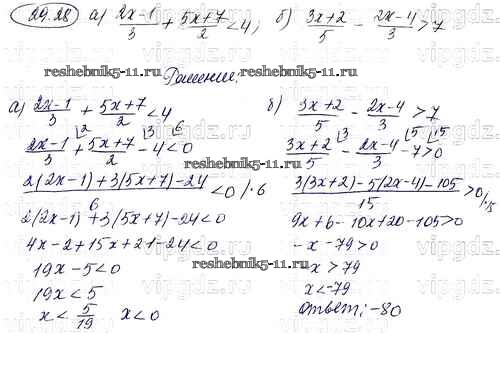 29.28 а) (2x-1)/3 + (5x+7)/2 < 4; б) (3x+2)/5 - (2x-4)/3 > 7
reshebnik5-11.ru reshebnik5-11.ru
Решение.
а) (2x-1)/3 + (5x+7)/2 < 4
(2x-1)/3 + (5x+7)/2 - 4 < 0
(2(2x-1)+3(5x+7)-24)/6 < 0 /·6
2(2x-1)+3(5x+7)-24<0
4x-2+15x+21-24<0
19x-5<0
19x<5
x < 5/19 x<0
б) (3x+2)/5 - (2x-4)/3 > 7
(3x+2)/5 - (2x-4)/3 - 7 > 0
(3(3x+2)-5(2x-4)-105)/15 > 0 /·15
9x+6-10x+20-105>0
-x-79>0
-x>79
x<-79
Ответ: -80
reshebnik5-11.ru
vipgdz.ru